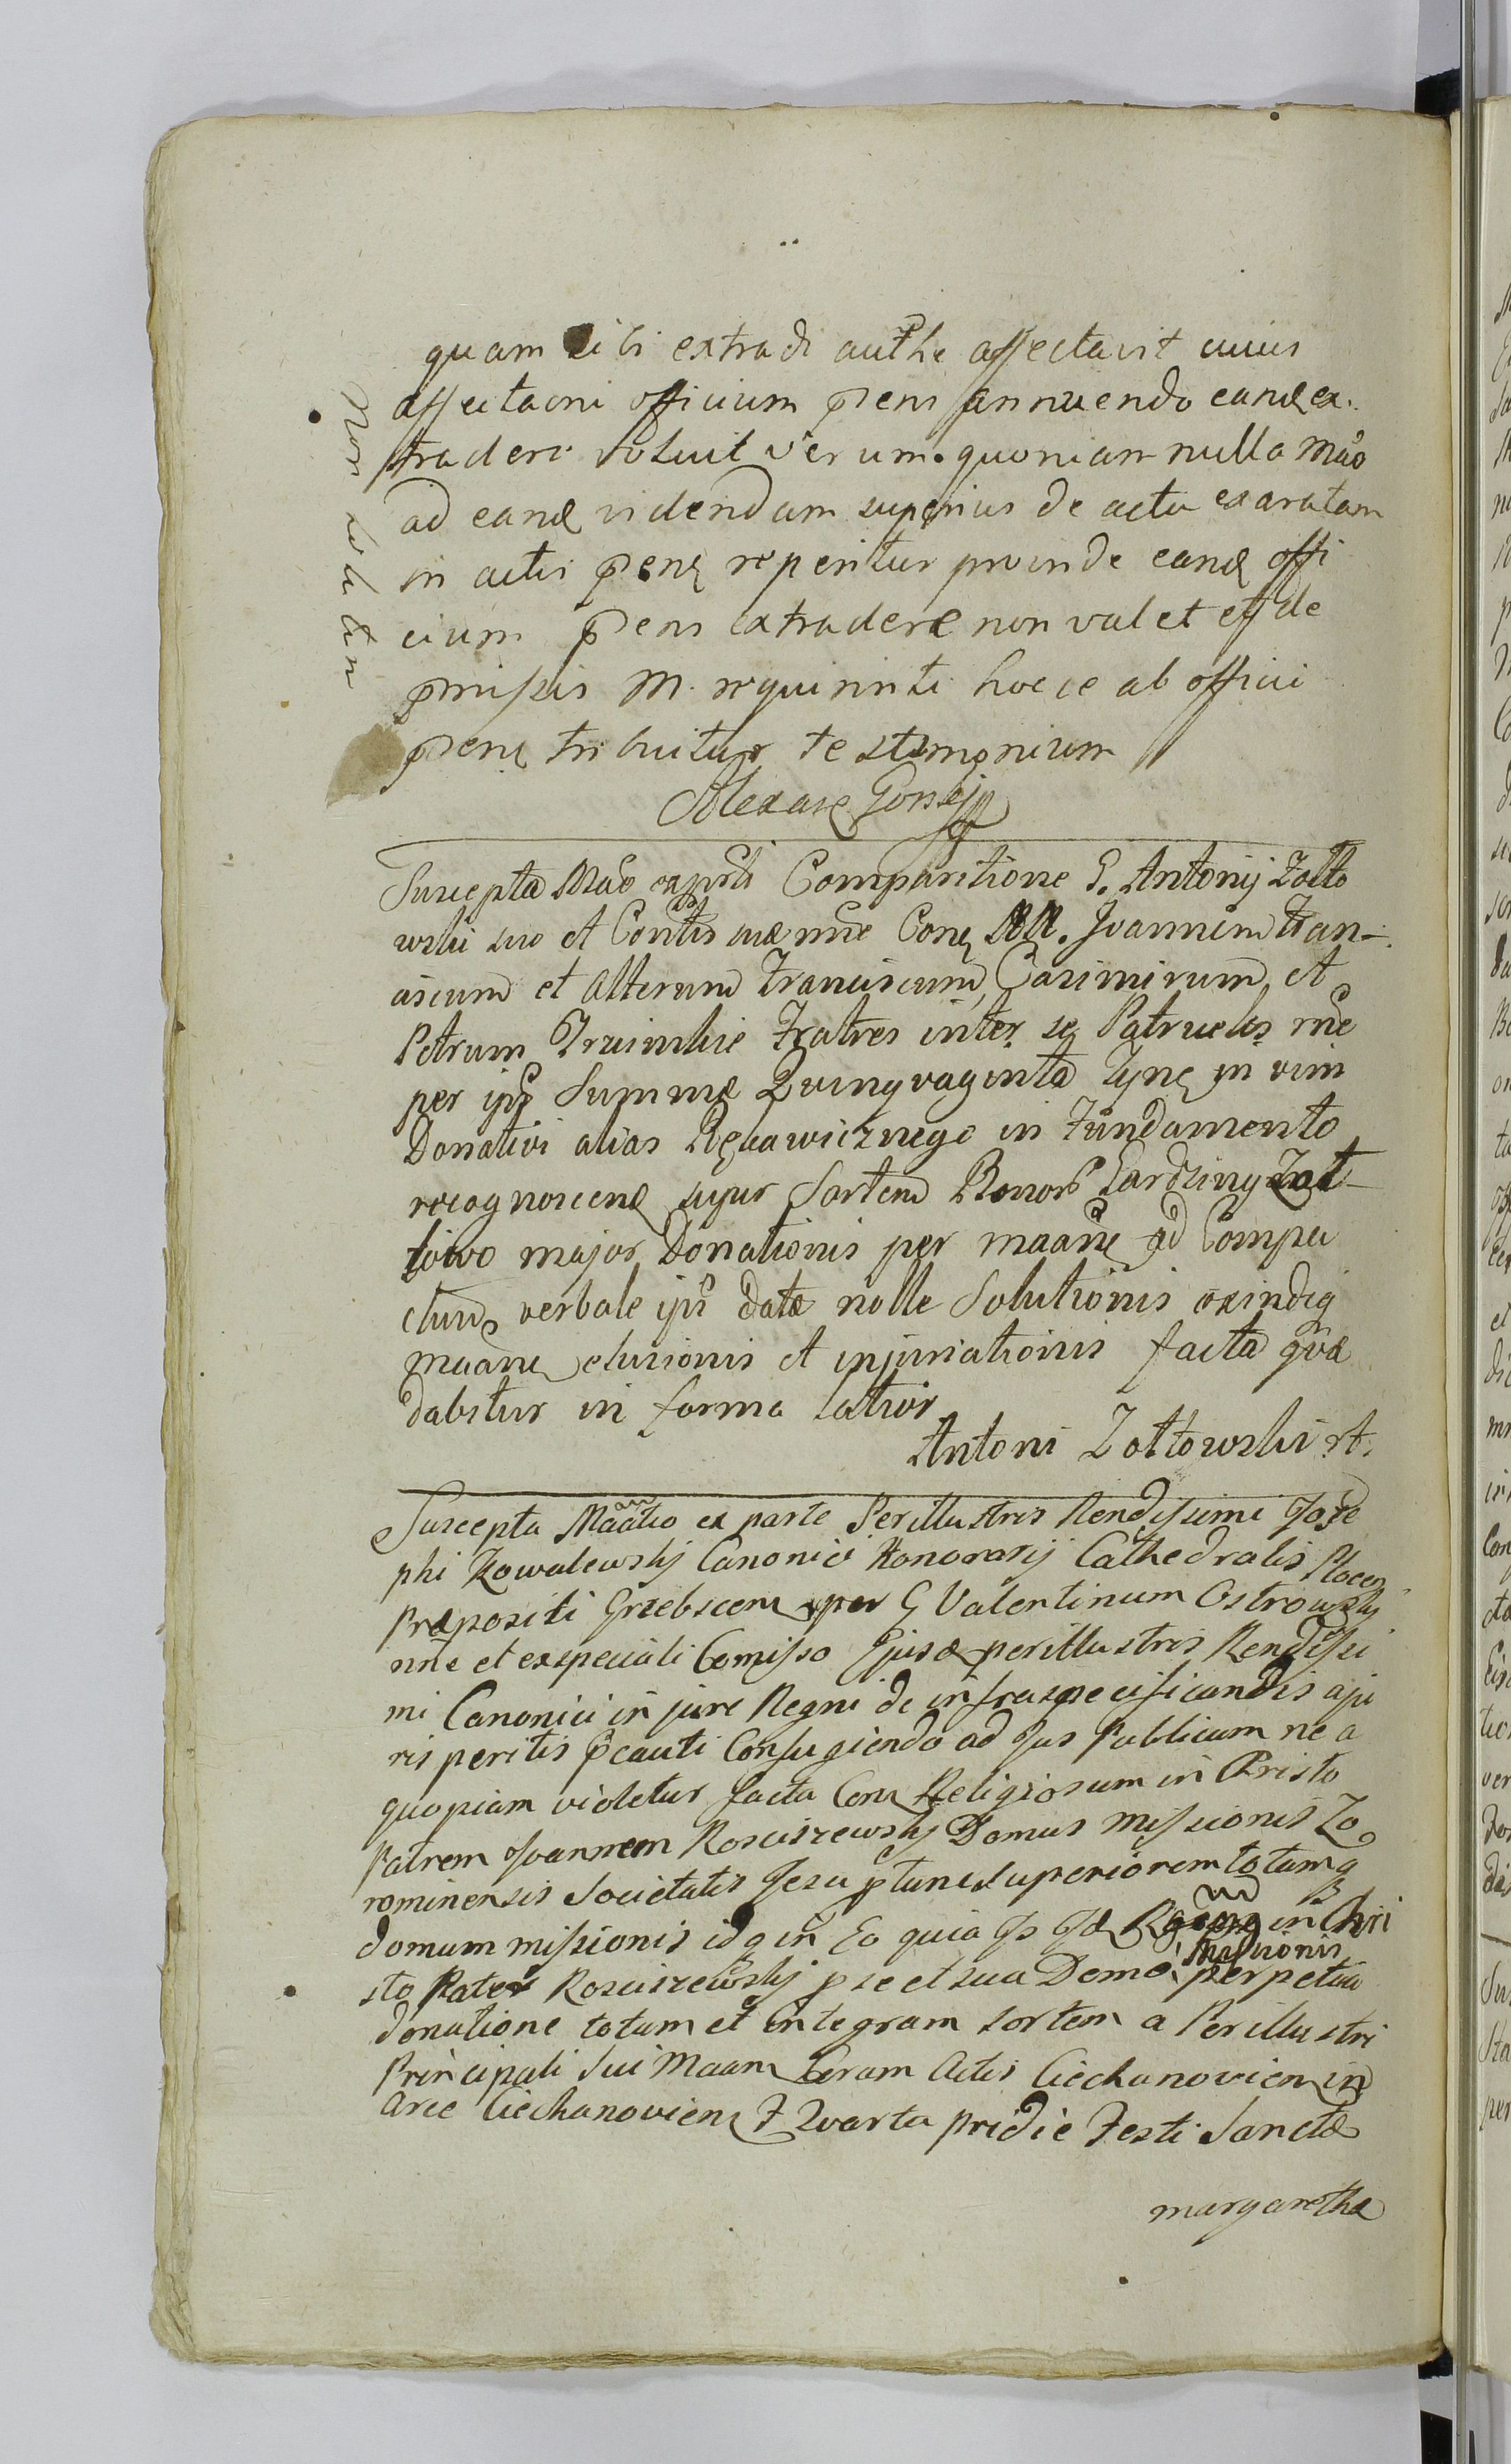 quam sibi extradi authe affectavit cuius
affectaoni officium pens annuendo eand ex
tradere voluit verum quoniam nulla mao
ad eand videndam superius de actu exaratam
in actis pens reperitur proinde eand offi
cium pens extradere non valet et de
pmissis M. requirenti hocce ab officii
pens tribuitur testimonium
Non solutum
Suscepta Mao exparti Comparitione G. Antonij Zołto
wski suo et Contis suæ nne Conq MM. Joannem Fran-
ciscum et alterum Franciscum, Casimirum et
Petrum Fratres inter se Patrueles rne
per ips Summæ Quinquaginta Tynf in vim
Donativi alias Rękawicznego in Fundamento
recognoscend super Sortem Bonor Gardziny Zał
towo major Donationis per maane ad Compa
ctum verbale ips datæ nolle Solutionis exindeq
maane elusionis et injuriationis facta quæ
dabitur in forma latior
Antoni Zołtowski
Suscepta Maatio ex parte Perillustris Rendissimi Jose
phi Kowalewskj Canonici Honorarij Cathedralis Plocen
Præpositi Grzebscen per G Valentinum Ostrowskj
nne et ex speciali Comisso Ejusd perillustris Rendissi
mi Canonici in jure Regni de infraspecificandis a ju
ris peritis pcauti Confugiendo ad Jus Publicum ne a
quopiam violetur facta Con Religiosum in Christo
Patrem Joannem Rosciszewskj Domus Missionis Zo
rominensis Societatis Jesu p tunc Superiorem totamq
domum missionis idq in Eo quia Is Id Rndus in Chri
sto Pater Rosciszewskj p se et sua Domo Missionis perpetua
donatione totam et integram sortem a Perillustri
Principali sui Maan Coram Actis Ciechanovien in
Arce Ciechanovien F Quarta pridie Festi Sanctæ
margarethæ